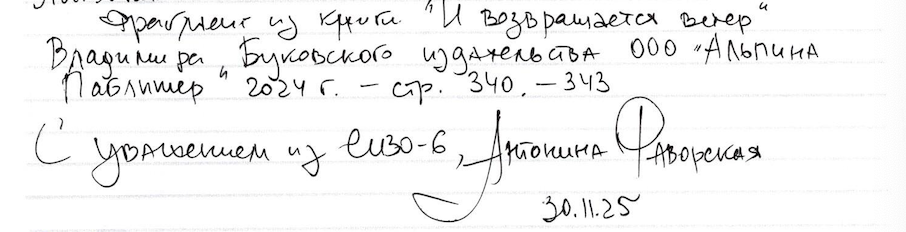 Фрагмент из книги "И возвращается ветер"
Владимира Буковского издательства ООО "Альпина
Паблишер" 2024 г. – стр. 340. – 343
С уважением из СИЗО-6, Антонина Фаворская
30.11.25